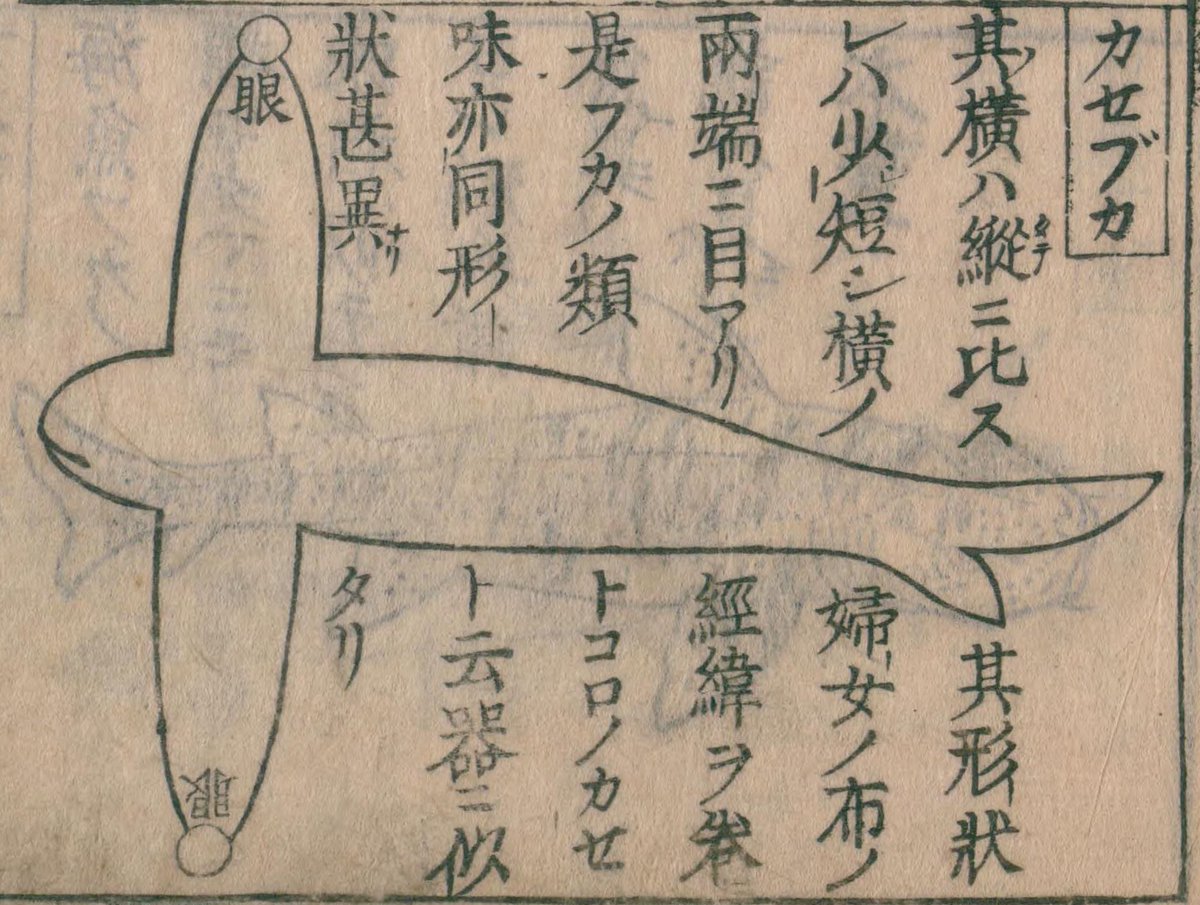 カセブカ
其横ハ縦ニ比ス
レハ少短シ横ノ
兩端ニ目アリ
是フカノ類
味亦同形
狀甚異ナリ
其形狀
婦女ノ布ノ
經緯ヲ卷
トコロノカセ
ト云器ニ似
タリ
眼
眼